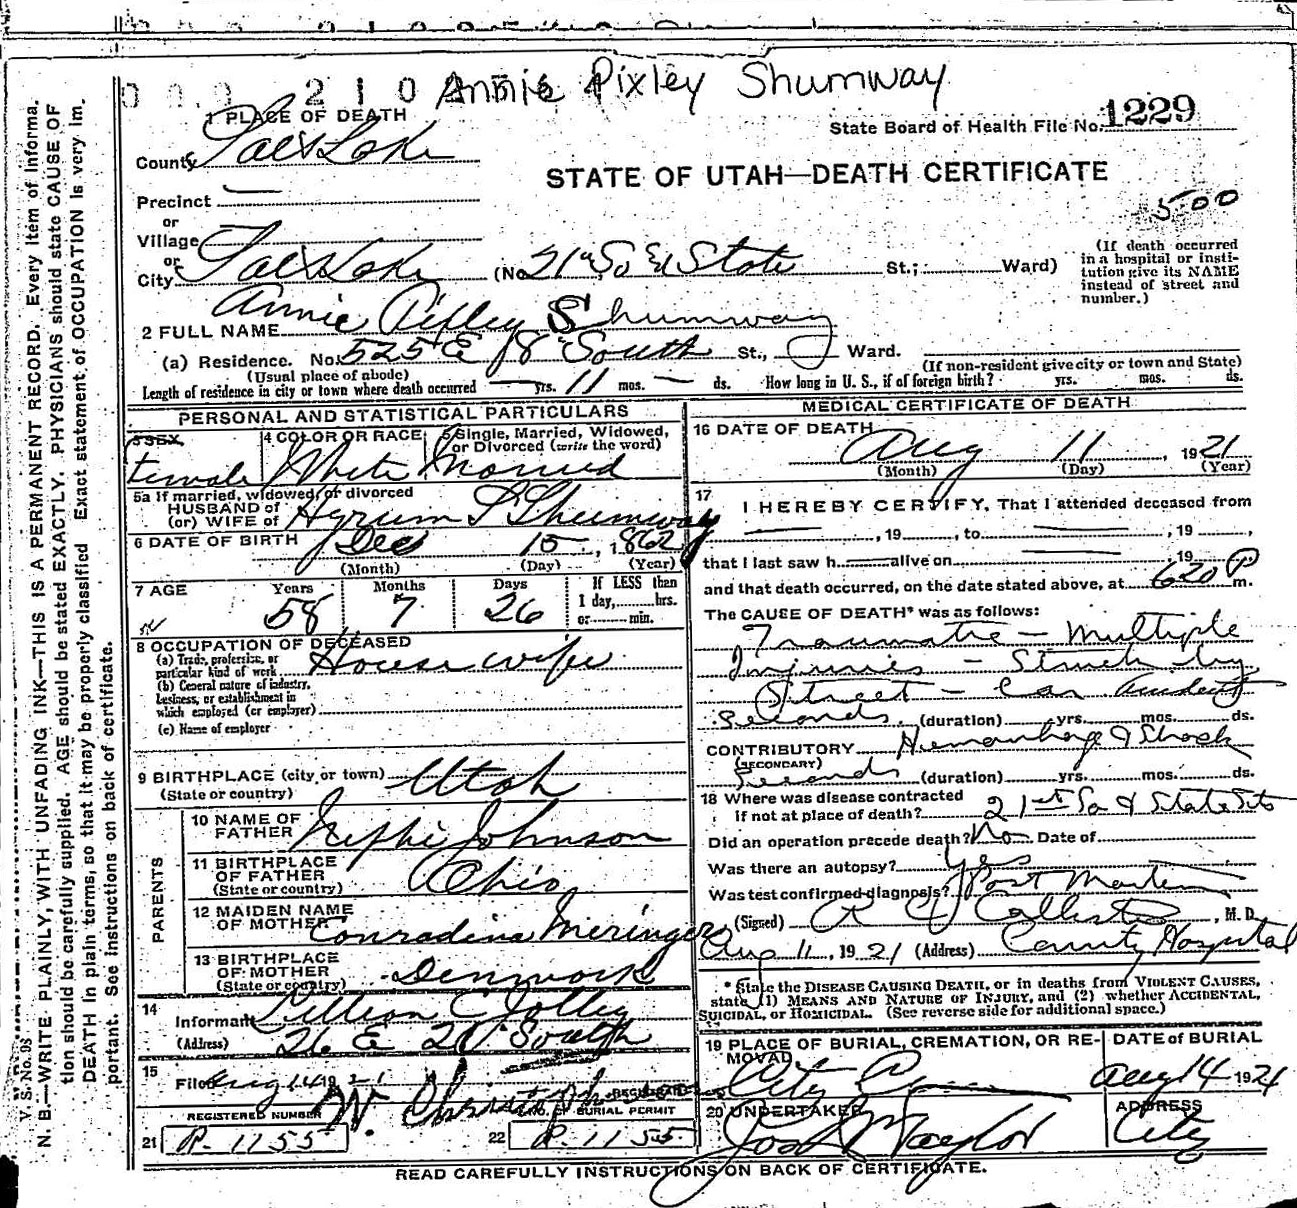 Annie Pixley Shumway
1 PLACE OF DEATH
State Board of Health File No. 1229
County Salt Lake
STATE OF UTAH—DEATH CERTIFICATE
Precinct
500
or
Village
or
City Salt Lake (No. 21st So & State St.; Ward)
(If death occurred
in a hospital or insti-
tution give its NAME
instead of street and
number.)
2 FULL NAME Annie Pixley Shumway
(a) Residence. No. 525 E 18" South St., Ward.
(Usual place of abode)
(If non-resident give city or town and State)
Length of residence in city or town where death occurred — yrs. 11 mos. — ds. How long in U. S., if of foreign birth? yrs. mos. ds.
PERSONAL AND STATISTICAL PARTICULARS
3 SEX
Female
4 COLOR OR RACE
White
5 Single, Married, Widowed,
or Divorced (write the word)
Married
5a If married, widowed, or divorced
HUSBAND of
(or) WIFE of Hyrum S Shumway
6 DATE OF BIRTH Dec 15, 1862
(Month) (Day) (Year)
7 AGE
Years 58
Months 7
Days 26
If LESS than
1 day, hrs.
or min.
8 OCCUPATION OF DECEASED
(a) Trade, profession, or
particular kind of work House wife
(b) General nature of industry,
business, or establishment in
which employed (or employer)
(c) Name of employer
9 BIRTHPLACE (city or town) Utah
(State or country)
PARENTS
10 NAME OF
FATHER Nephi Johnson
11 BIRTHPLACE
OF FATHER Ohio
(State or country)
12 MAIDEN NAME
OF MOTHER Conradina Meringer
13 BIRTHPLACE
OF MOTHER Denmark
(State or country)
14
Informant Lillian C Jolley
(Address) 26 E 21" South
15
Filed Aug 14 1921
REGISTRAR
REGISTERED NUMBER
21 R. 1155
NO. OF BURIAL PERMIT
22 R. 1155
MEDICAL CERTIFICATE OF DEATH
16 DATE OF DEATH
Aug 11, 1921
(Month) (Day) (Year)
17
I HEREBY CERTIFY, That I attended deceased from
, 19 , to , 19 ,
that I last saw h alive on , 19
and that death occurred, on the date stated above, at 620 P m.
The CAUSE OF DEATH* was as follows:
Traumatic — Multiple
Injuries — Struck by
Street — Car Accident
Seconds (duration) yrs. mos. ds.
CONTRIBUTORY Hemorrhage & Shock
(SECONDARY)
Seconds (duration) yrs. mos. ds.
18 Where was disease contracted
if not at place of death? 21st So & State Sts
Did an operation precede death? No Date of
Was there an autopsy? Yes
Was test confirmed diagnosis? Post Mortem
(Signed) R J Callister, M. D.
Aug 11, 1921 (Address) County Hospital
* State the DISEASE CAUSING DEATH, or in deaths from VIOLENT CAUSES,
state (1) MEANS AND NATURE OF INJURY, and (2) whether ACCIDENTAL,
SUICIDAL, or HOMICIDAL. (See reverse side for additional space.)
19 PLACE OF BURIAL, CREMATION, OR RE-
MOVAL
City
DATE of BURIAL
Aug 14 1921
20 UNDERTAKER
Jos Wm Taylor
ADDRESS
City
READ CAREFULLY INSTRUCTIONS ON BACK OF CERTIFICATE.
V. S. No. 98
N. B.—WRITE PLAINLY, WITH UNFADING INK—THIS IS A PERMANENT RECORD. Every item of informa-
tion should be carefully supplied. AGE should be stated EXACTLY. PHYSICIANS should state CAUSE OF
DEATH in plain terms, so that it may be properly classified. Exact statement of OCCUPATION is very im-
portant. See instructions on back of certificate.